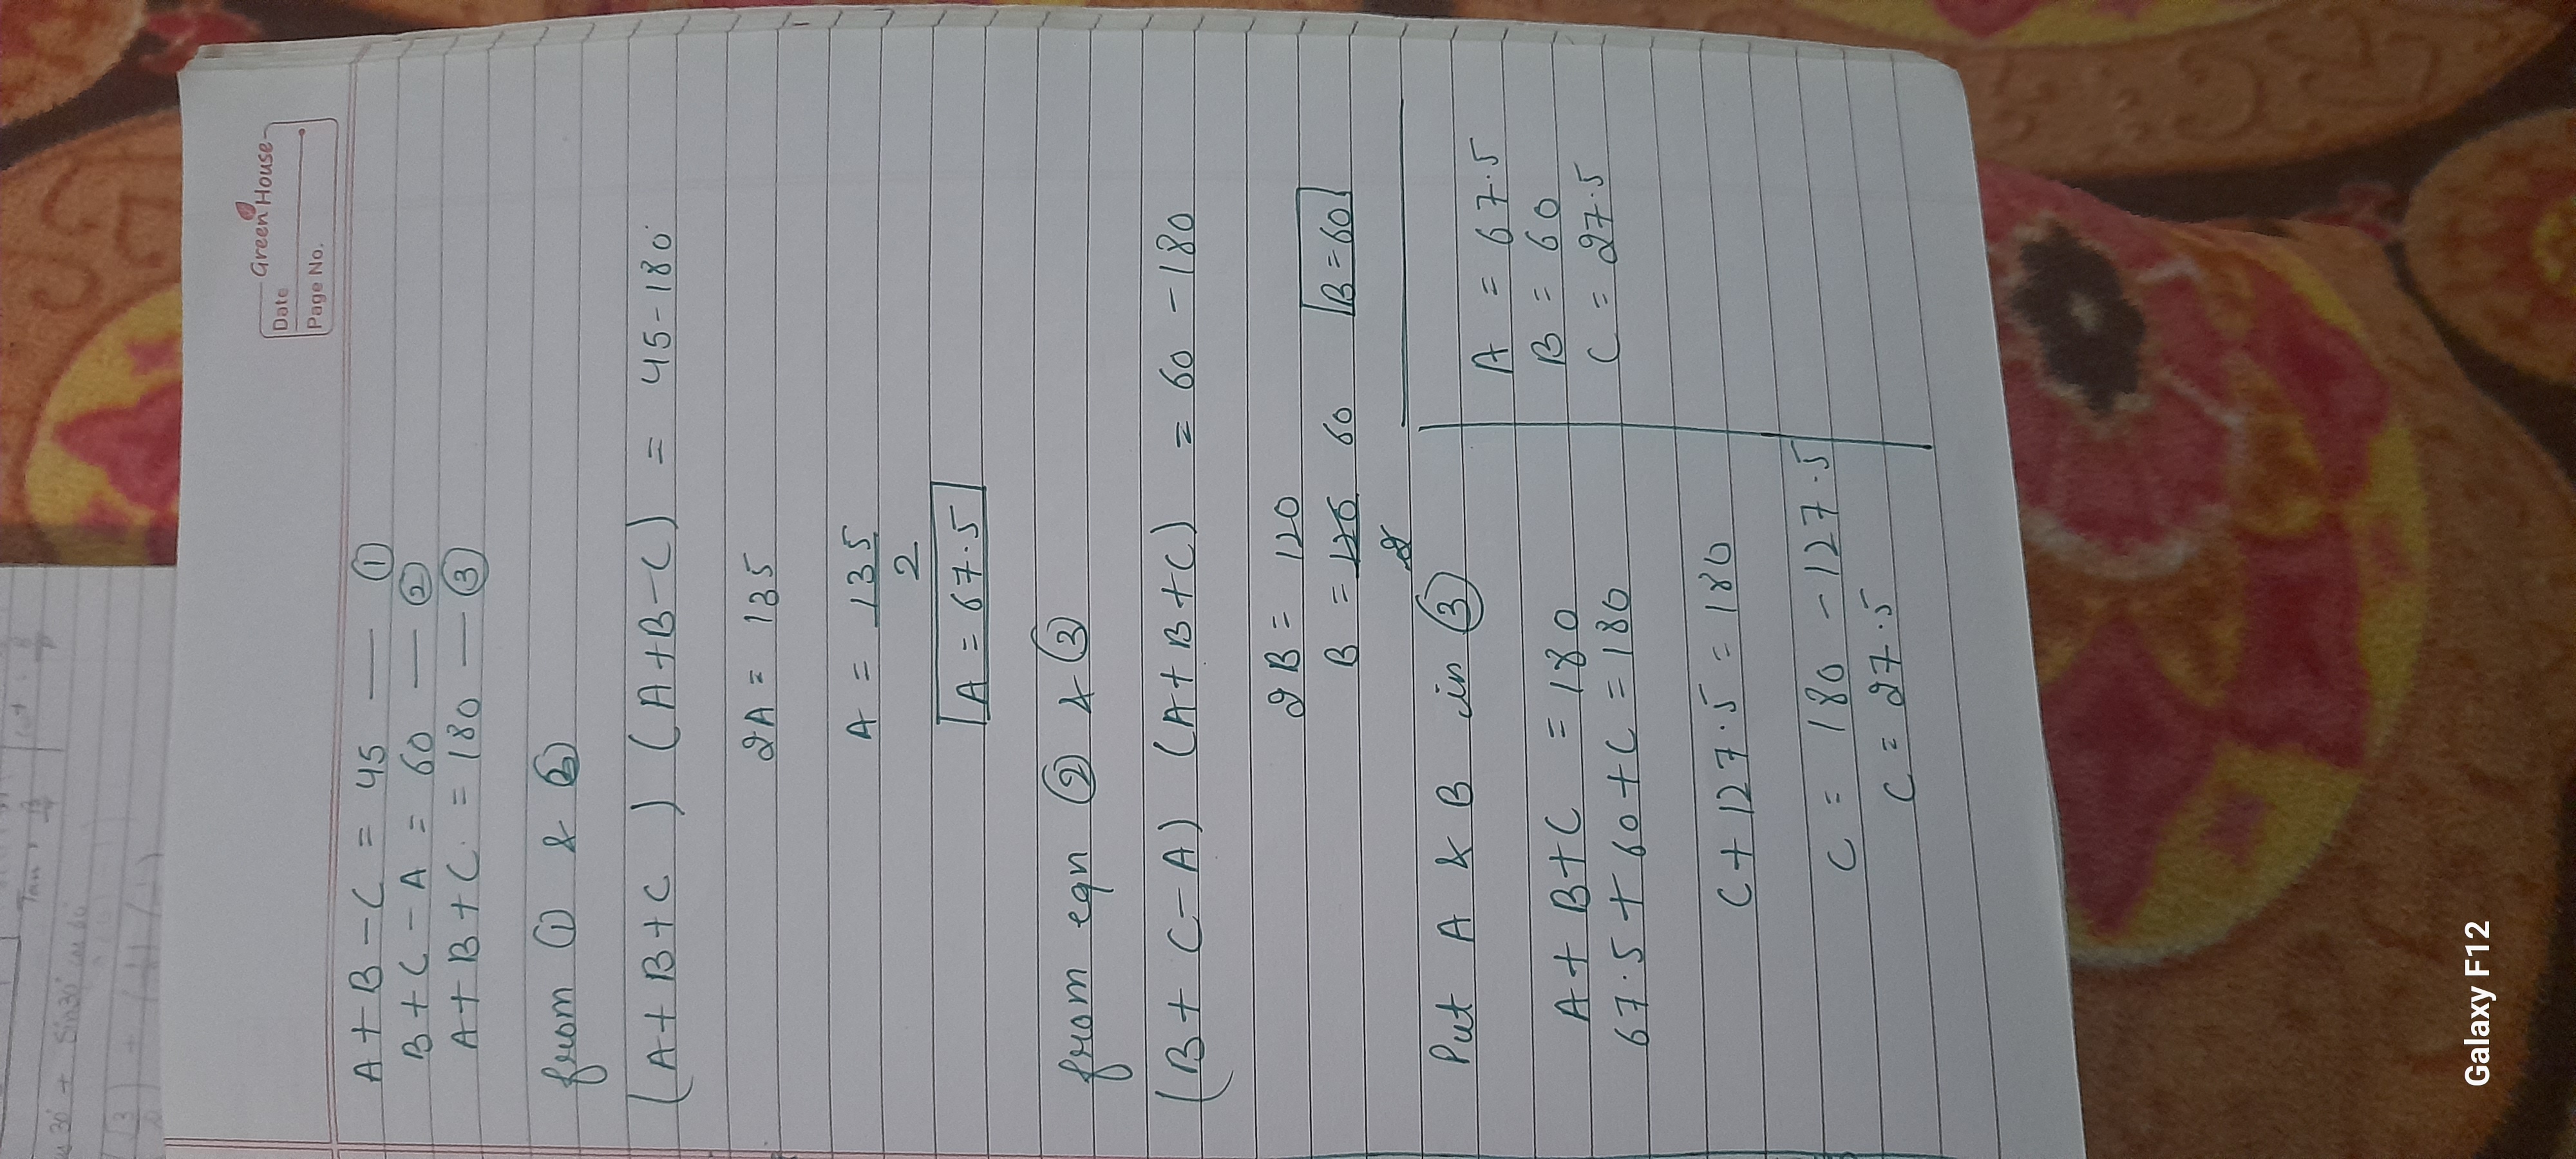 Green House
Date
Page No.
A + B - C = 45 — ①
B + C - A = 60 — ②
A + B + C = 180 — ③
from ① &
(A + B + C ) (A+B-C) = 45-180
2A = 135
A = 135
2
A = 67.5
from eqn ② & ③
(B + C - A) (A+B+C) = 60 - 180
2B = 120
B = 120 60 B = 60
2
Put A & B in ③
A + B + C = 180
67.5 + 60 + C = 180
C + 127.5 = 180
C = 180 - 127.5
C = 27.5
A = 67.5
B = 60
C = 27.5
Galaxy F12